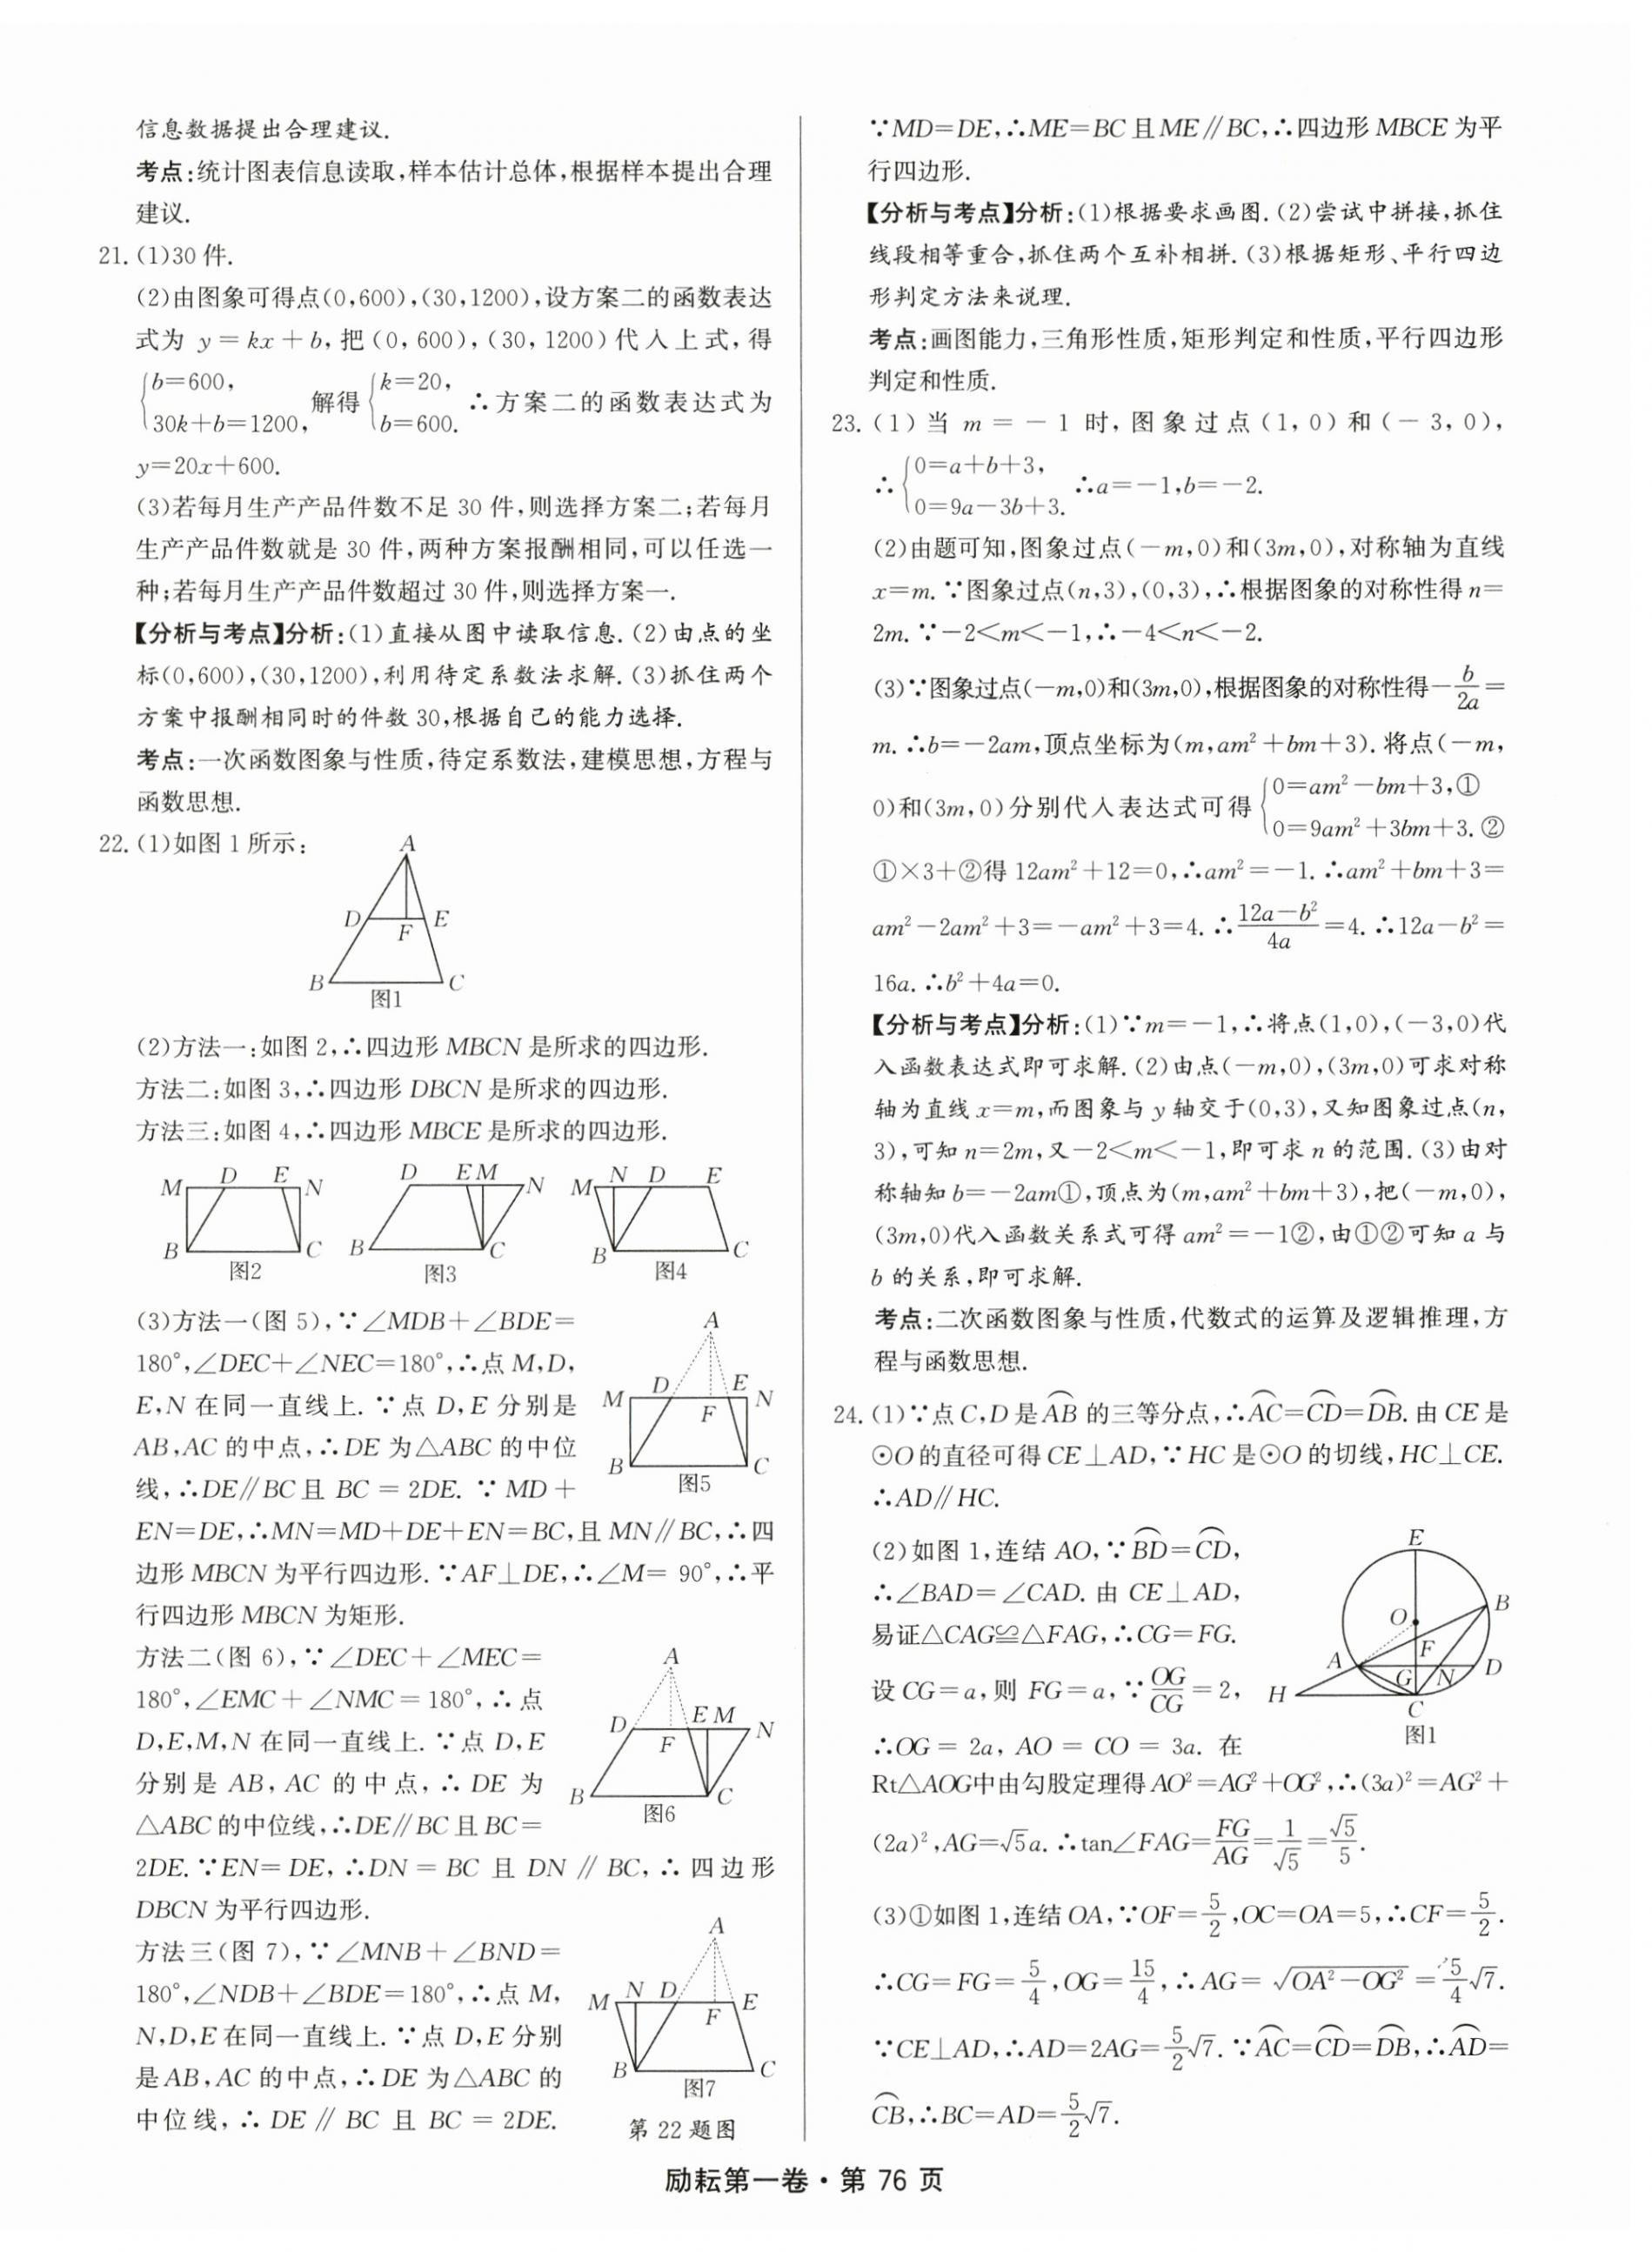 信息数据提出合理建议.
考点:统计图表信息读取,样本估计总体,根据样本提出合理
建议.
21. (1)30 件.
(2)由图象可得点(0,600),(30,1200),设方案二的函数表达
式为 y=kx+b,把(0,600),(30,1200)代入上式,得
{b=600, 30k+b=1200, 解得 {k=20, b=600. ∴方案二的函数表达式为
y=20x+600.
(3)若每月生产产品件数不足 30 件,则选择方案二;若每月
生产产品件数就是 30 件,两种方案报酬相同,可以任选一
种;若每月生产产品件数超过 30 件,则选择方案一.
【分析与考点】分析:(1)直接从图中读取信息.(2)由点的坐
标(0,600),(30,1200),利用待定系数法求解.(3)抓住两个
方案中报酬相同时的件数 30,根据自己的能力选择.
考点:一次函数图象与性质,待定系数法,建模思想,方程与
函数思想.
22. (1)如图 1 所示:
A
D E
F
B C
图1
(2)方法一:如图 2,∴四边形 MBCN 是所求的四边形.
方法二:如图 3,∴四边形 DBCN 是所求的四边形.
方法三:如图 4,∴四边形 MBCE 是所求的四边形.
M D E N
B C
图2
D E M N
B C
图3
M N D E
B C
图4
(3)方法一(图 5),∵∠MDB+∠BDE=
180°,∠DEC+∠NEC=180°,∴点 M,D,
E,N 在同一直线上.∵点 D,E 分别是
AB,AC 的中点,∴DE 为△ABC 的中位
线,∴DE∥BC 且 BC=2DE.∵MD+
A
M D E N
F
B C
图5
EN=DE,∴MN=MD+DE+EN=BC,且 MN∥BC,∴四
边形 MBCN 为平行四边形.∵AF⊥DE,∴∠M= 90°,∴平
行四边形 MBCN 为矩形.
方法二(图 6),∵∠DEC+∠MEC=
180°,∠EMC+∠NMC=180°,∴点
D,E,M,N 在同一直线上.∵点 D,E
分别是 AB,AC 的中点,∴DE 为
△ABC 的中位线,∴DE∥BC 且 BC=
A
D E M N
F
B C
图6
2DE.∵EN=DE,∴DN=BC 且 DN∥BC,∴四边形
DBCN 为平行四边形.
方法三(图 7),∵∠MNB+∠BND=
180°,∠NDB+∠BDE=180°,∴点 M,
N,D,E 在同一直线上.∵点 D,E 分别
是 AB,AC 的中点,∴DE 为△ABC 的
中位线,∴DE∥BC 且 BC=2DE.
A
M N D E
F
B C
图7
第 22 题图
∵MD=DE,∴ME=BC 且 ME∥BC,∴四边形 MBCE 为平
行四边形.
【分析与考点】分析:(1)根据要求画图.(2)尝试中拼接,抓住
线段相等重合,抓住两个互补相拼.(3)根据矩形、平行四边
形判定方法来说理.
考点:画图能力,三角形性质,矩形判定和性质,平行四边形
判定和性质.
23. (1)当 m=-1 时,图象过点(1,0)和(-3,0),
∴{0=a+b+3, 0=9a-3b+3. ∴a=-1,b=-2.
(2)由题可知,图象过点(-m,0)和(3m,0),对称轴为直线
x=m.∵图象过点(n,3),(0,3),∴根据图象的对称性得 n=
2m.∵-2<m<-1,∴-4<n<-2.
(3)∵图象过点(-m,0)和(3m,0),根据图象的对称性得-b/2a=
m.∴b=-2am,顶点坐标为(m,am²+bm+3).将点(-m,
0)和(3m,0)分别代入表达式可得{0=am²-bm+3,① 0=9am²+3bm+3.②
①×3+②得 12am²+12=0,∴am²=-1.∴am²+bm+3=
am²-2am²+3=-am²+3=4.∴(12a-b²)/4a=4.∴12a-b²=
16a.∴b²+4a=0.
【分析与考点】分析:(1)∵m=-1,∴将点(1,0),(-3,0)代
入函数表达式即可求解.(2)由点(-m,0),(3m,0)可求对称
轴为直线 x=m,而图象与 y 轴交于(0,3),又知图象过点(n,
3),可知 n=2m,又-2<m<-1,即可求 n 的范围.(3)由对
称轴知 b=-2am①,顶点为(m,am²+bm+3),把(-m,0),
(3m,0)代入函数关系式可得 am²=-1②,由①②可知 a 与
b 的关系,即可求解.
考点:二次函数图象与性质,代数式的运算及逻辑推理,方
程与函数思想.
24. (1)∵点 C,D 是⌒AB 的三等分点,∴⌒AC=⌒CD=⌒DB.由 CE 是
⊙O 的直径可得 CE⊥AD,∵HC 是⊙O 的切线,HC⊥CE.
∴AD∥HC.
(2)如图 1,连结 AO,∵⌒BD=⌒CD,
∴∠BAD=∠CAD.由 CE⊥AD,
易证△CAG≌△FAG,∴CG=FG.
设 CG=a,则 FG=a,∵OG/CG=2,
∴OG=2a,AO=CO=3a.在
E
O B
F
A G N D
H C
图1
Rt△AOG中由勾股定理得 AO²=AG²+OG²,∴(3a)²=AG²+
(2a)²,AG=√5a.∴tan∠FAG=FG/AG=1/√5=√5/5.
(3)①如图 1,连结 OA,∵OF=5/2,OC=OA=5,∴CF=5/2.
∴CG=FG=5/4,OG=15/4,∴AG=√(OA²-OG²)=5/4√7.
∵CE⊥AD,∴AD=2AG=5/2√7.∵⌒AC=⌒CD=⌒DB,∴⌒AD=
⌒CB,∴BC=AD=5/2√7.
励耘第一卷·第 76 页